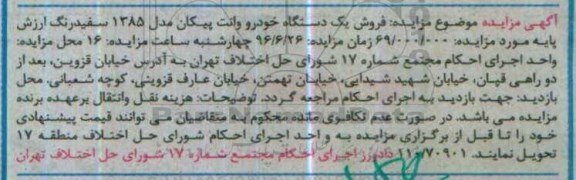 آگهی مزایده موضوع مزایده: فروش یک دستگاه خودرو وانت پیکان مدل ۱۳۸۵ سفیدرنگ ارزش
پایه مورد مزایده: ۶۹/۰۰۰/۰۰۰ زمان مزایده: ۹۶/۶/۲۶ چهارشنبه ساعت مزایده: ۱۶ محل مزایده:
واحد اجرای احکام مجتمع شماره ۱۷ شورای حل اختلاف تهران به آدرس خیابان قزوین، بعد از
دو راهی قپان، خیابان شهید شیدایی، خیابان تهمتن، خیابان عارف قزوینی، کوچه شعبانی. محل
بازدید: جهت بازدید به اجرای احکام مراجعه گردد. توضیحات: هزینه نقل وانتقال برعهده برنده
مزایده می باشد. در صورت عدم تکافوی مانده محکوم به متقاضیان می توانند قیمت پیشنهادی
خود را تا قبل از برگزاری مزایده به واحد اجرای احکام شورای حل اختلاف منطقه ۱۷
تحویل نمایند. ۱۱۰۷۰۹۰۱ دادورز اجرای احکام مجتمع شماره ۱۷ شورای حل اختلاف تهران